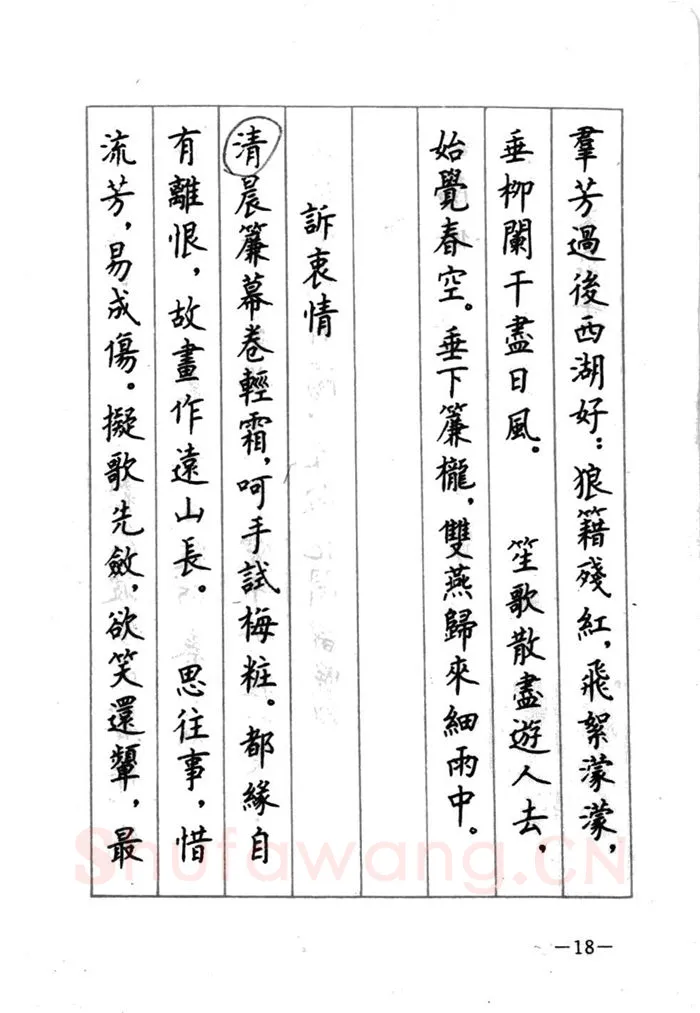 羣芳過後西湖好：狼籍殘紅，飛絮濛濛，
垂柳闌干盡日風。　笙歌散盡遊人去，
始覺春空。垂下簾櫳，雙燕歸來細雨中。
訴衷情
清晨簾幕卷輕霜，呵手試梅粧。都緣自
有離恨，故畫作遠山長。　思往事，惜
流芳，易成傷。擬歌先斂，欲笑還顰，最
Shufawang.CN
—18—